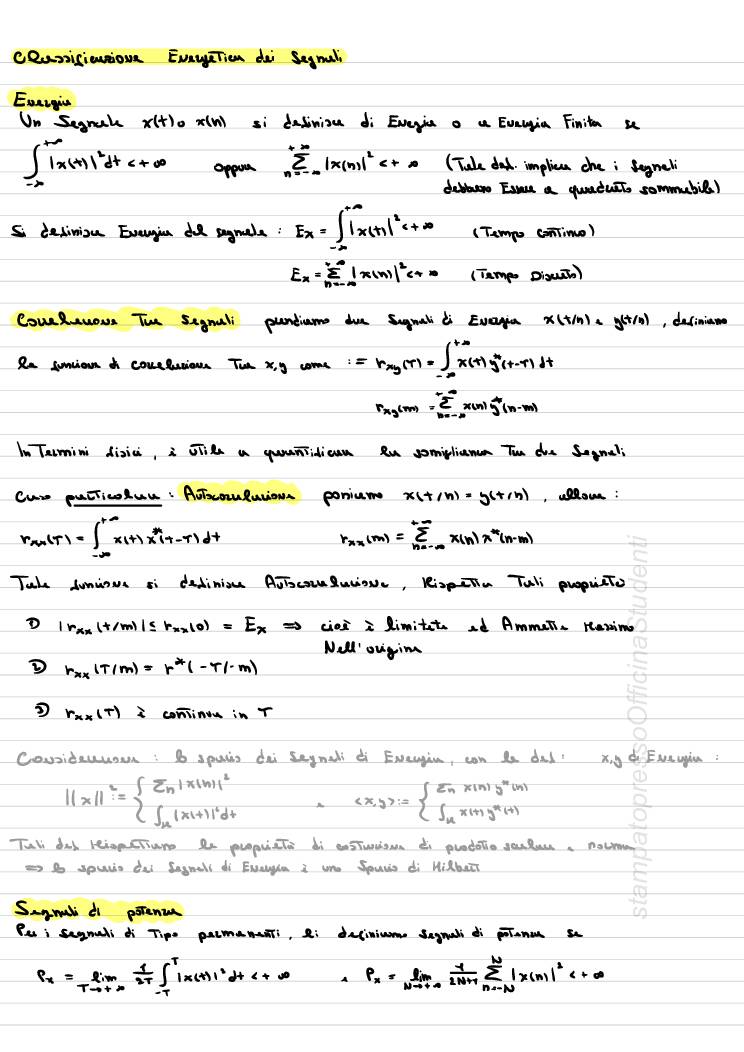 Classificazione Energetica dei Segnali
Energia
Un Segnale x(t) o x(n) si definisce di Energia o a Energia Finita se
∫_{-∞}^{+∞} |x(t)|² dt < +∞ oppure Σ_{n=-∞}^{+∞} |x(n)|² < +∞ (Tale def. implica che i segnali
debbano Essere a quadrato sommabile)
Si definisce Energia del segnale : Ex = ∫_{-∞}^{+∞} |x(t)|² < +∞ (Tempo Continuo)
Ex = Σ_{n=-∞}^{+∞} |x(n)|² < +∞ (Tempo Discreto)
Correlazione Tra Segnali prendiamo due Segnali di Energia x(t/n) e y(t/n), definiamo
la funzione di correlazione Tra x,y come := r_xy(τ) = ∫_{-∞}^{+∞} x(t) y*(t-τ) dt
r_xy(m) = Σ_{n=-∞}^{+∞} x(n) y*(n-m)
In Termini fisici, è utile a quantificare la somiglianza Tra due Segnali
Caso particolare : Autocorrelazione poniamo x(t/n) = y(t/n), allora :
r_xx(τ) = ∫_{-∞}^{+∞} x(t) x*(t-τ) dt r_xx(m) = Σ_{n=-∞}^{+∞} x(n) x*(n-m)
Tale funzione si definisce Autocorrelazione, Rispetta Tali proprietà
1) |r_xx(t/m)| ≤ r_xx(0) = Ex ⇒ cioè è limitata ed Ammette Massimo
Nell'origine
2) r_xx(τ/m) = r*(-τ/-m)
3) r_xx(τ) è continua in τ
Considerazione : lo spazio dei Segnali di Energia, con le def : x,y di Energia :
||x||² := { Σn |x(n)|² ; ∫_R |x(t)|² dt e <x,y> := { Σn x(n) y*(n) ; ∫_R x(t) y*(t)
Tali def. Rispettano le proprietà di costruzione di prodotto scalare e norma
⇒ lo spazio dei Segnali di Energia è uno Spazio di Hilbert
Segnali di potenza
Per i segnali di Tipo permanenti, li definiamo segnali di potenza se
Px = lim_{T→+∞} 1/2T ∫_{-T}^{T} |x(t)|² dt < +∞ e Px = lim_{N→+∞} 1/2N+1 Σ_{n=-N}^{N} |x(n)|² < +∞
stampatopressoOfficinaStudenti